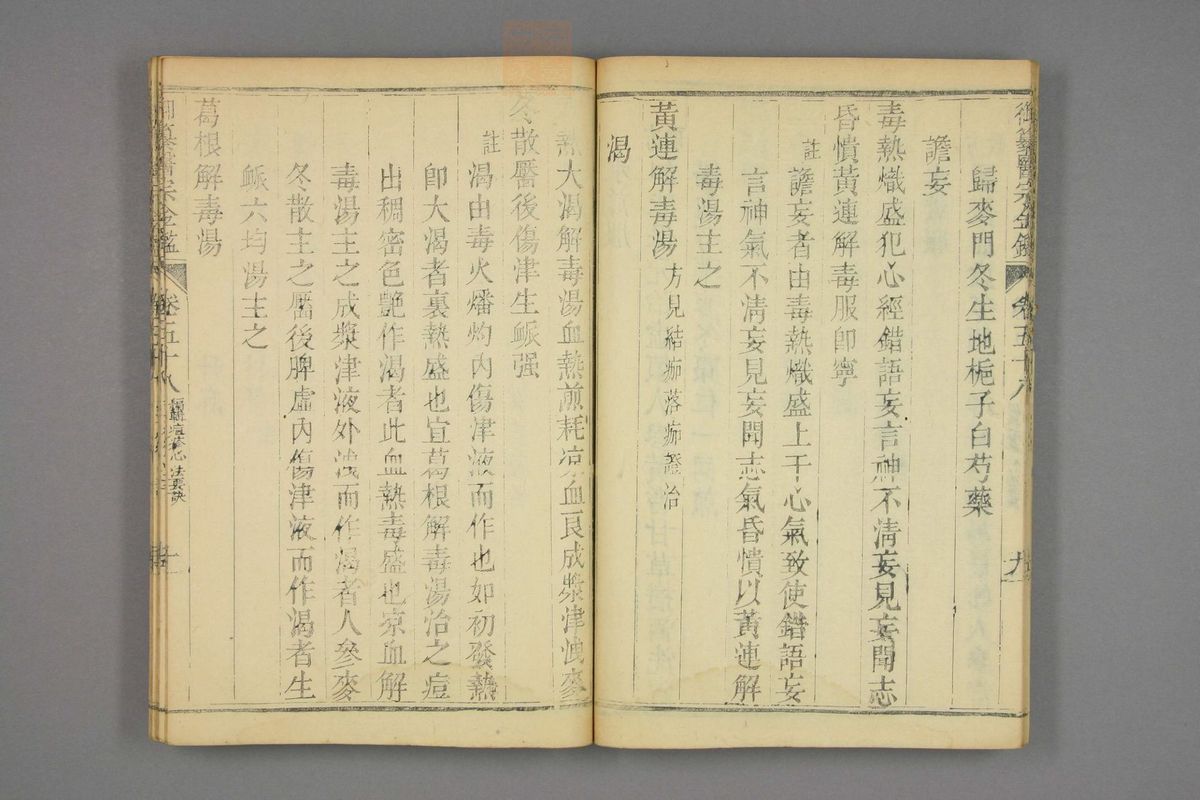 御纂醫宗金鑑 卷五十八 九
歸麥門冬生地梔子白芍藥
譫妄
毒熱熾盛犯心經錯語妄言神不清妄見妄聞志
昏憒黃連解毒服卽寧
註 譫妄者由毒熱熾盛上干心氣致使錯語妄
言神氣不清妄見妄聞志氣昏憒以黃連解
毒湯主之
黃連解毒湯 方見結痂落痂證治
渴
熱大渴解毒湯血熱煎耗凉血良成漿津洩麥
冬散靨後傷津生脈强
註 渴由毒火燔灼內傷津液而作也如初發熱
卽大渴者裏熱盛也宜葛根解毒湯治之痘
出稠密色艷作渴者此血熱毒盛也凉血解
毒湯主之成漿津液外洩而作渴者人參麥
冬散主之靨後脾虛內傷津液而作渴者生
脈六均湯主之
葛根解毒湯
纂醫宗金鑑 卷五十八 心法要訣